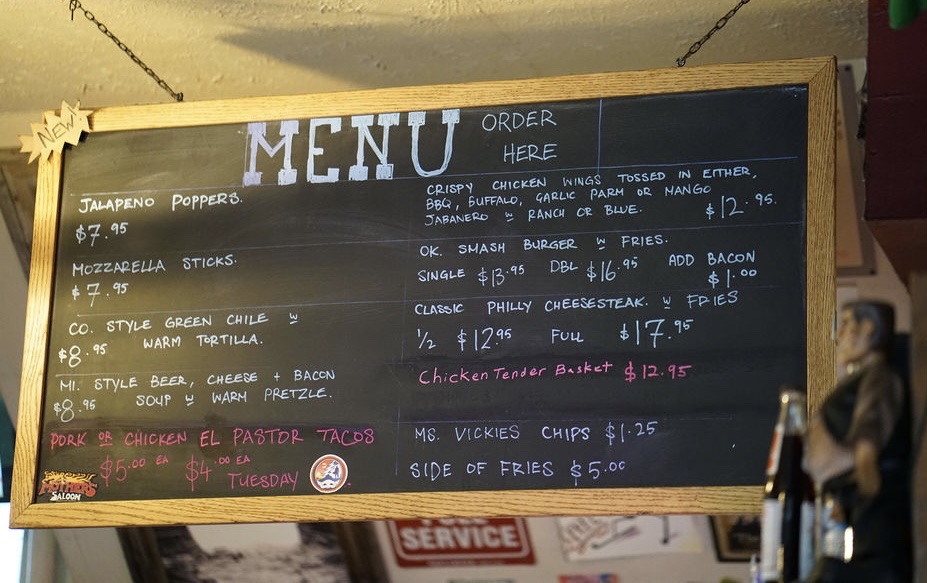 NEW!
MENU
ORDER
HERE
JALAPENO POPPERS.
$7.95
MOZZARELLA STICKS.
$7.95
CO. STYLE GREEN CHILE w
$8.95 WARM TORTILLA.
MI. STYLE BEER, CHEESE + BACON
$8.95 SOUP w WARM PRETZLE.
PORK OR CHICKEN EL PASTOR TACOS
$5.00 EA $4.00 EA
TUESDAY
MOTHERS
SALOON
CRISPY CHICKEN WINGS TOSSED IN EITHER,
BBQ, BUFFALO, GARLIC PARM OR MANGO
JABANERO w RANCH OR BLUE. $12.95.
OK. SMASH BURGER w FRIES.
SINGLE $13.95 DBL $16.95 ADD BACON
$1.00
CLASSIC PHILLY CHEESESTEAK. w FRIES
1/2 $12.95 FULL $17.95
Chicken Tender Basket $12.95
MS. VICKIES CHIPS $1.25
SIDE OF FRIES $5.00
SERVICE